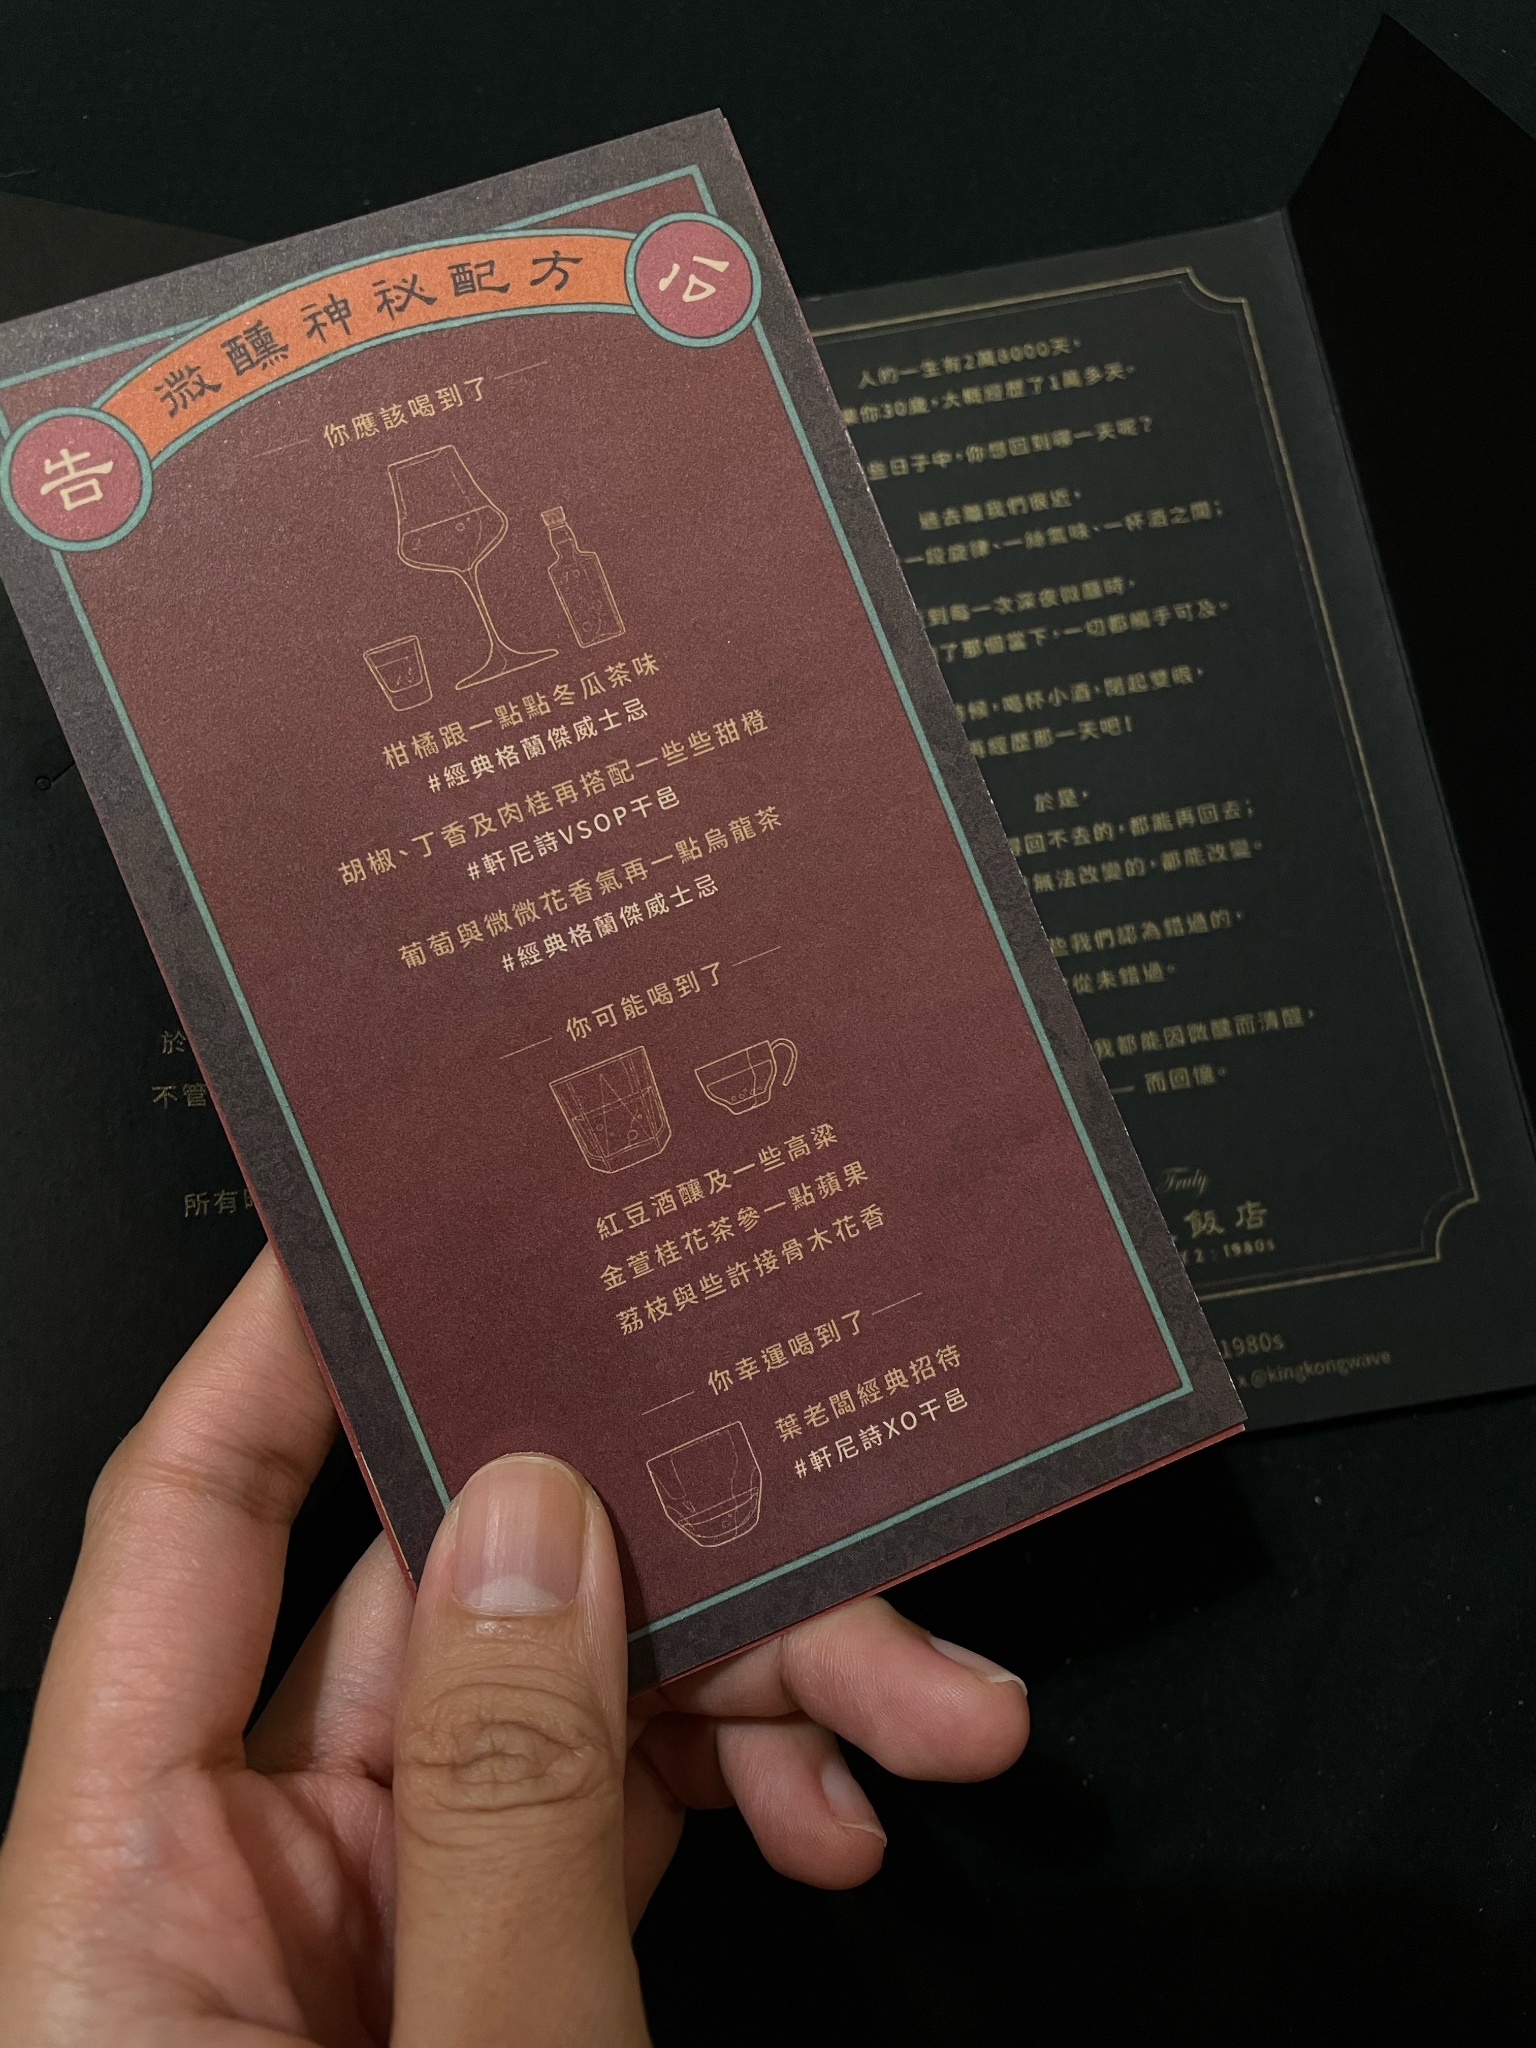 公告
微醺神秘配方
你應該喝到了
柑橘跟一點點冬瓜茶味
#經典格蘭傑威士忌
胡椒、丁香及肉桂再搭配一些些甜橙
#軒尼詩VSOP干邑
葡萄與微微花香氣再一點烏龍茶
#經典格蘭傑威士忌
你可能喝到了
紅豆酒釀及一些高粱
金萱桂花茶參一點蘋果
荔枝與些許接骨木花香
你幸運喝到了
葉老闆經典招待
#軒尼詩XO干邑
人的一生有2萬8000天,
你30歲,大概經歷了1萬多天。
些日子中,你想回到哪一天呢?
過去離我們很近,
一段旋律、一絲氣味、一杯酒之間;
到每一次深夜微醺時,
了那個當下,一切都觸手可及。
候,喝杯小酒,閉起雙眼,
再經歷那一天吧!
於是,
回不去的,都能再回去;
無法改變的,都能改變。
些我們認為錯過的,
從未錯過。
我都能因微醺而清醒,
— 而回憶。
Truly
飯店
2 : 1980s
1980s
x @kingkongwave
於
不管
所有